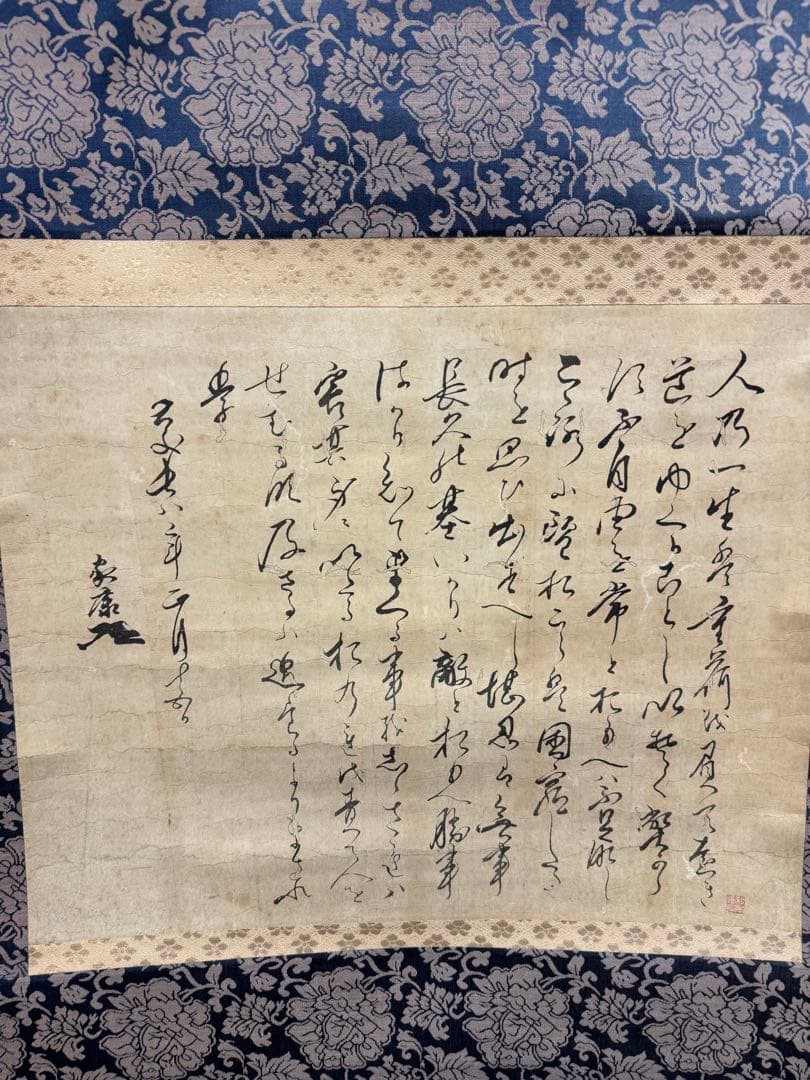 人乃一生は重荷を負て遠き
道をゆくかことしいそくへから
す不自由を常とおもへハ不足なし
こゝろに望おこらは困窮したる
時を思ひ出すへし堪忍は無事
長久の基いかりハ敵とおもへ勝事
はかり知て まくる事をしらされハ
害其身にいたるおのれを責て人を
せむるな及さるハ過たるよりまされ
り
慶長八年正月十五日
家康